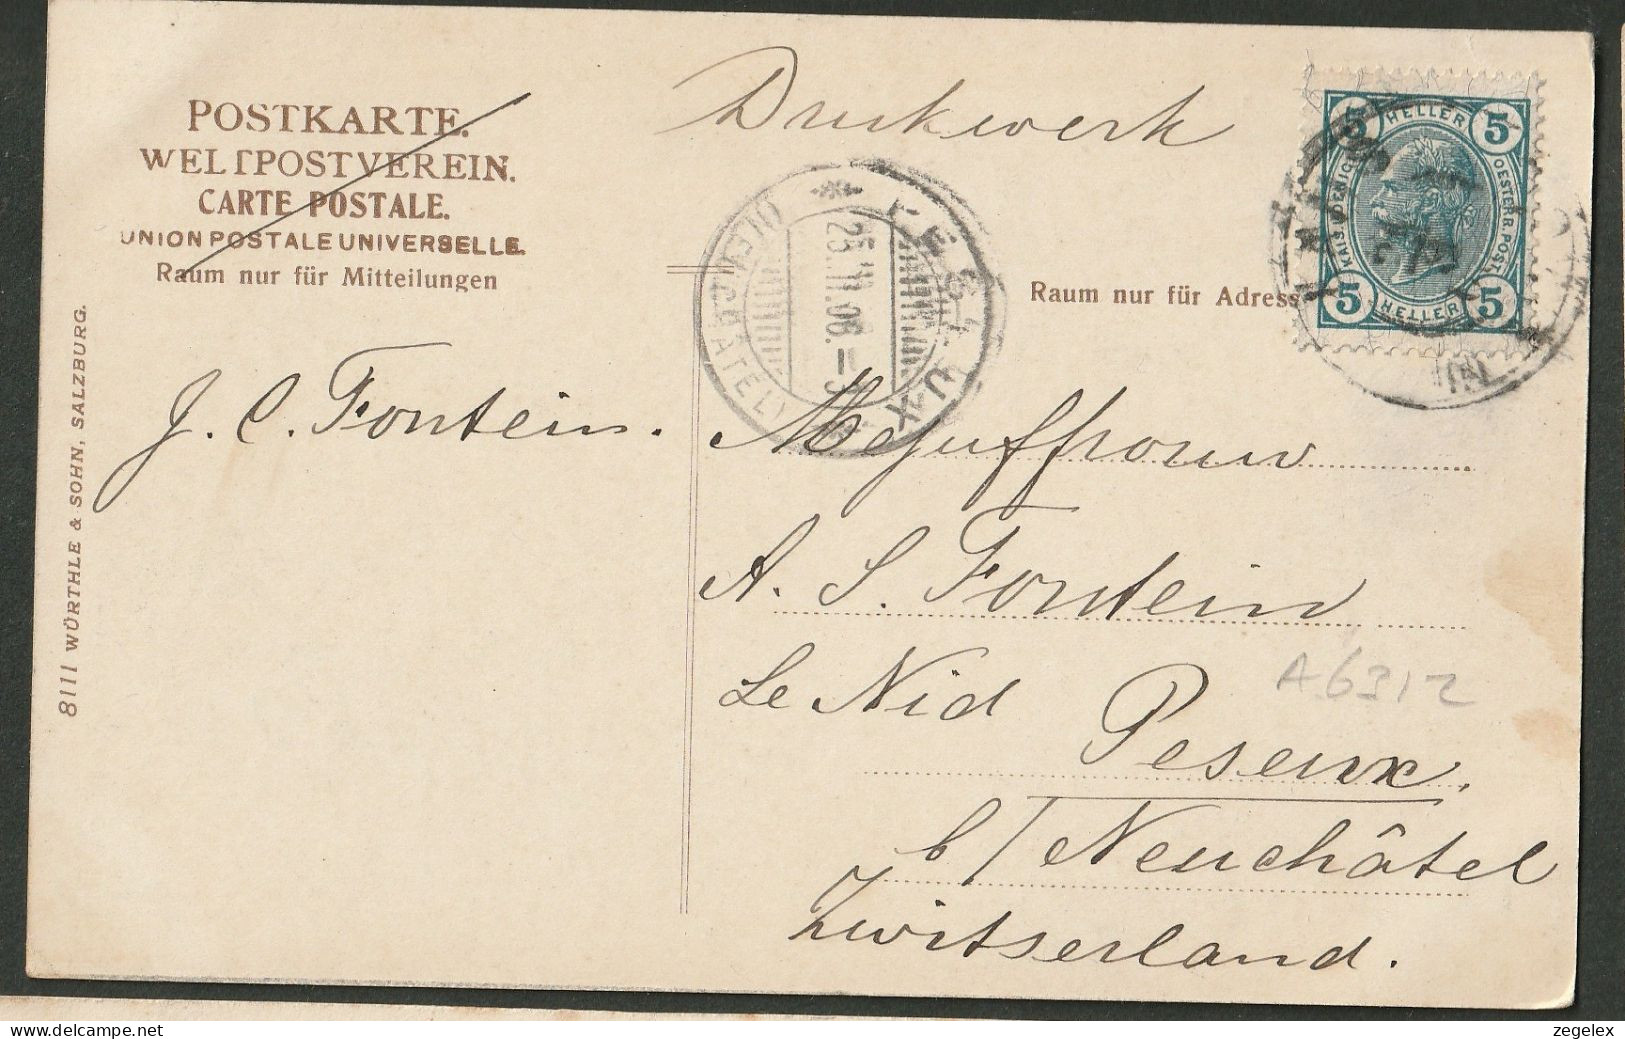 POSTKARTE.
WELTPOSTVEREIN.
CARTE POSTALE.
UNION POSTALE UNIVERSELLE.
Raum nur für Mitteilungen
Drukwerk
5 HELLER 5
KAIS. KÖNIGL.
OESTERR. POST.
5 HELLER 5
PESEUX
23.III.08.
(NEUCHÂTEL)
Raum nur für Adress
J. C. Fontein.
Mejuffrouw
A. S. Fontein
Le Nid
Peseux.
b/ Neuchâtel
Zwitserland.
A6312
8111 WÜRTHLE & SOHN, SALZBURG.
zegelex
www.delcampe.net